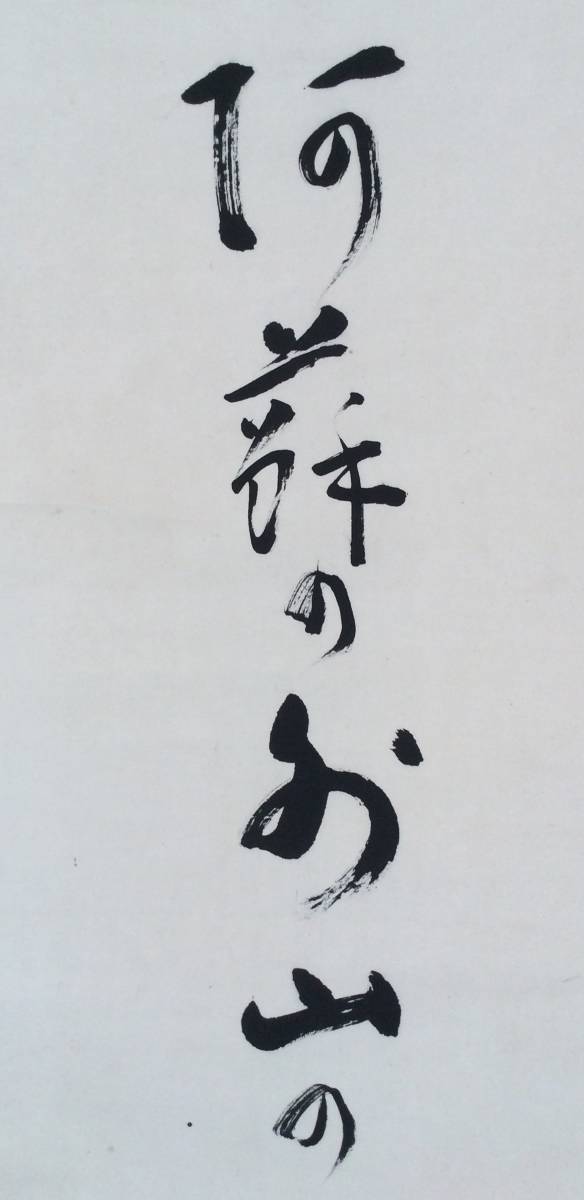 阿蘇の外山の